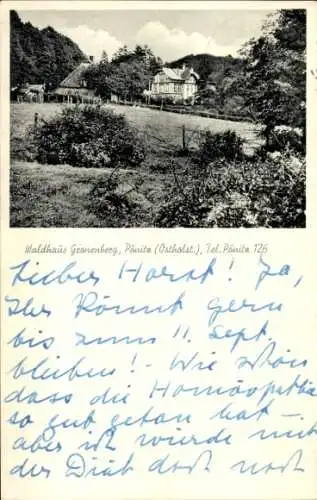 Waldhaus Gronenberg, Pönitz (Ostholst.), Tel. Pönitz 126
Lieber Horst! Ja,
Ihr könnt gern
bis zum 11. Sept.
bleiben! – Wie schön
dass die Homöopathie
so gut getan hat –
aber ich würde mit
der Diät doch noch